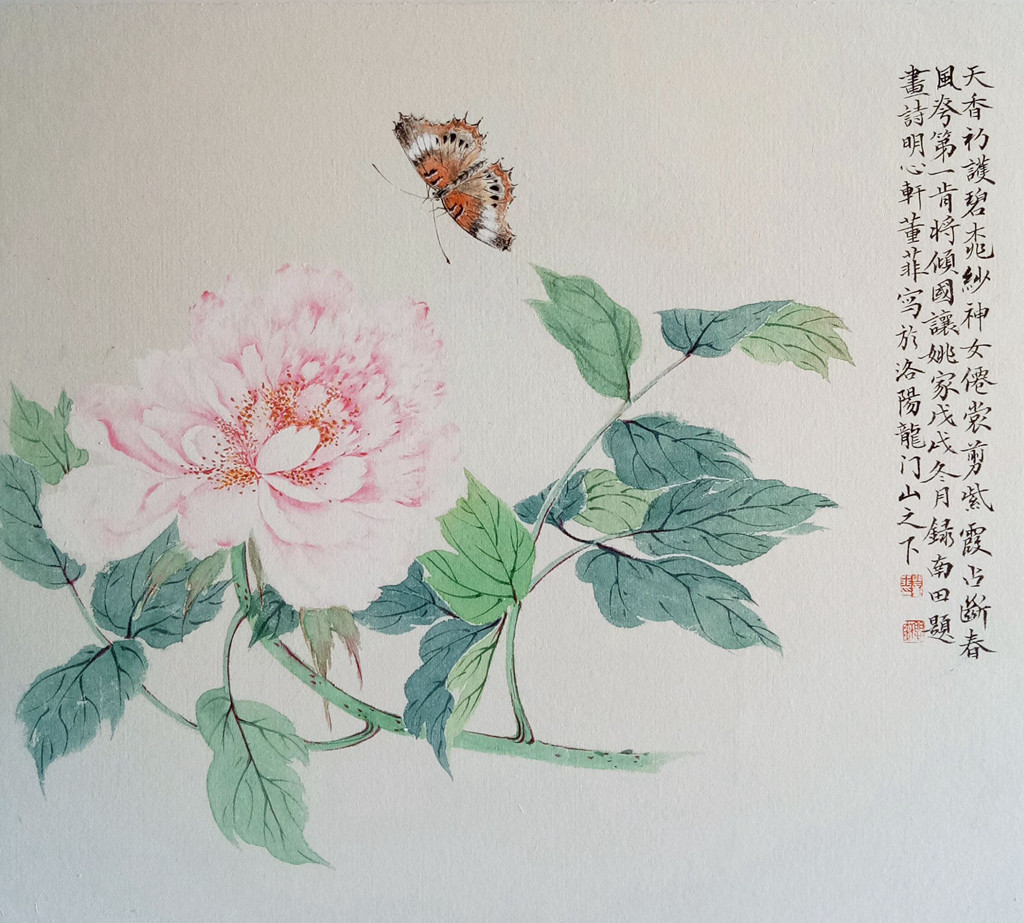 天香初護碧桃紗神女僊裳剪紫霞占斷春
風夸第一肯將傾國讓姚家戊戌冬月録南田題
畫詩明心軒董菲写於洛陽龍门山之下